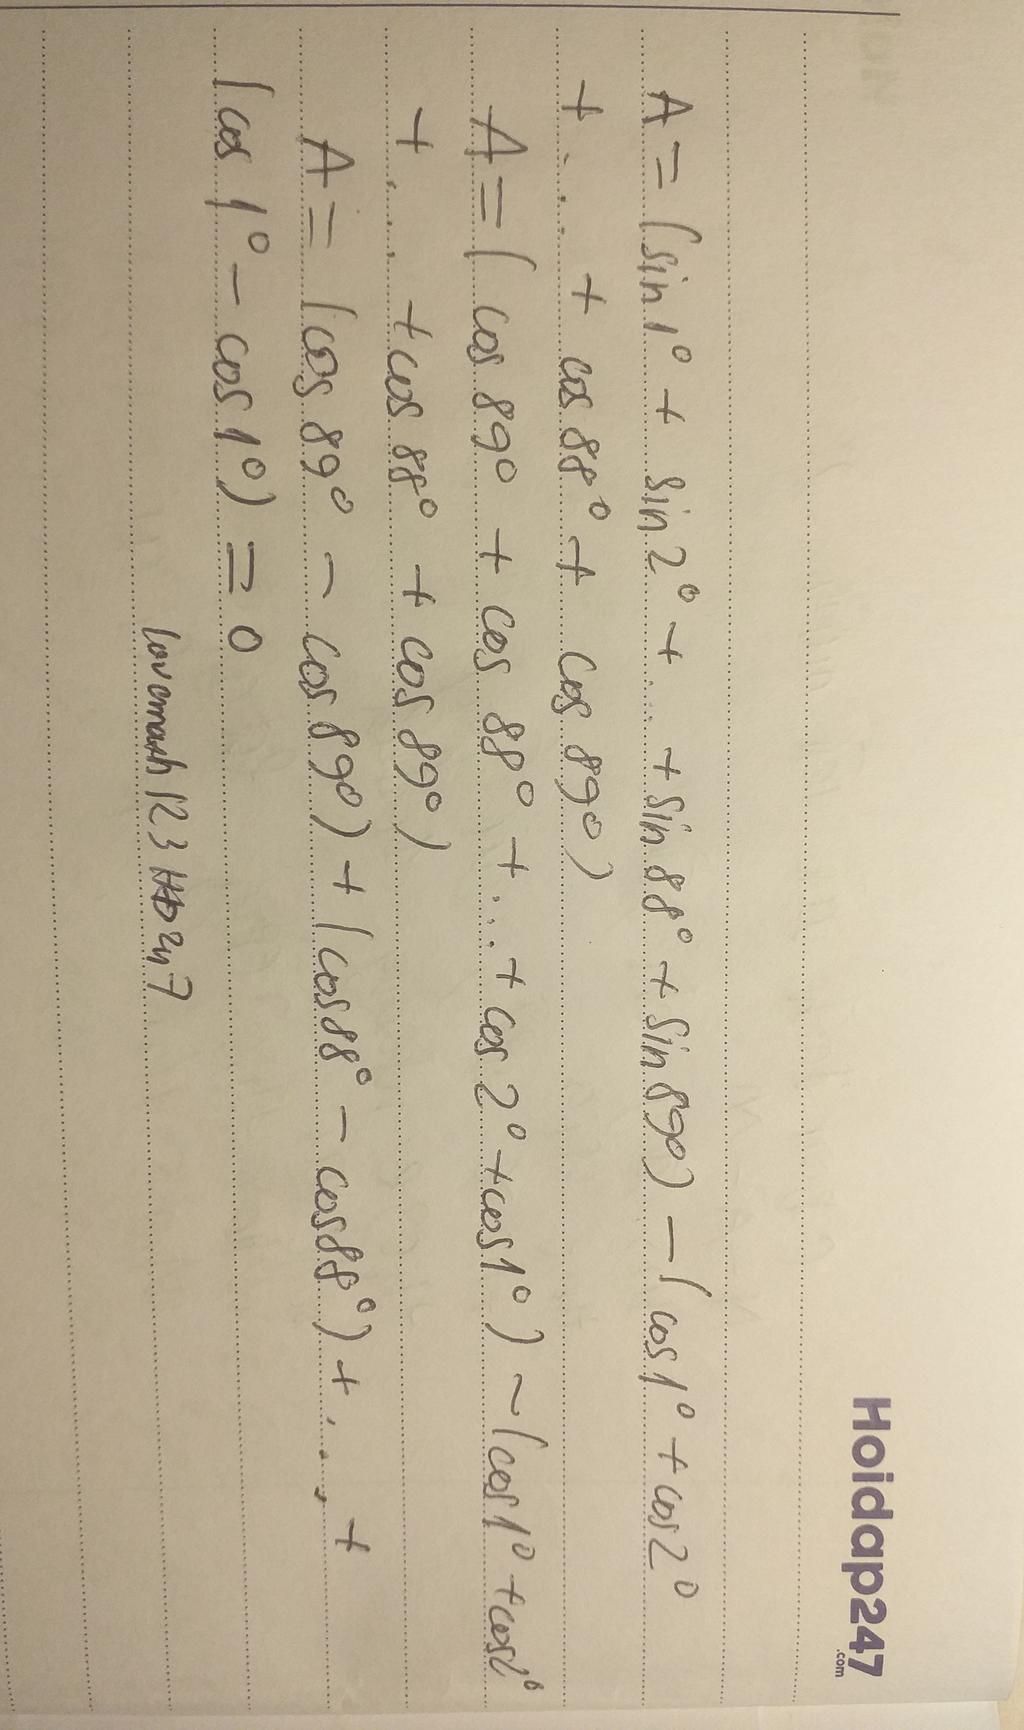 Hoidap247
.com
A = (sin 1° + sin 2° + ... + sin 88° + sin 89°) - (cos 1° + cos 2°
+ ... + cos 88° + cos 89°)
A = (cos 89° + cos 88° + ... + cos 2° + cos 1°) - (cos 1° + cos 2°
+ ... + cos 88° + cos 89°)
A = (cos 89° - cos 89°) + (cos 88° - cos 88°) + ... +
(cos 1° - cos 1°) = 0